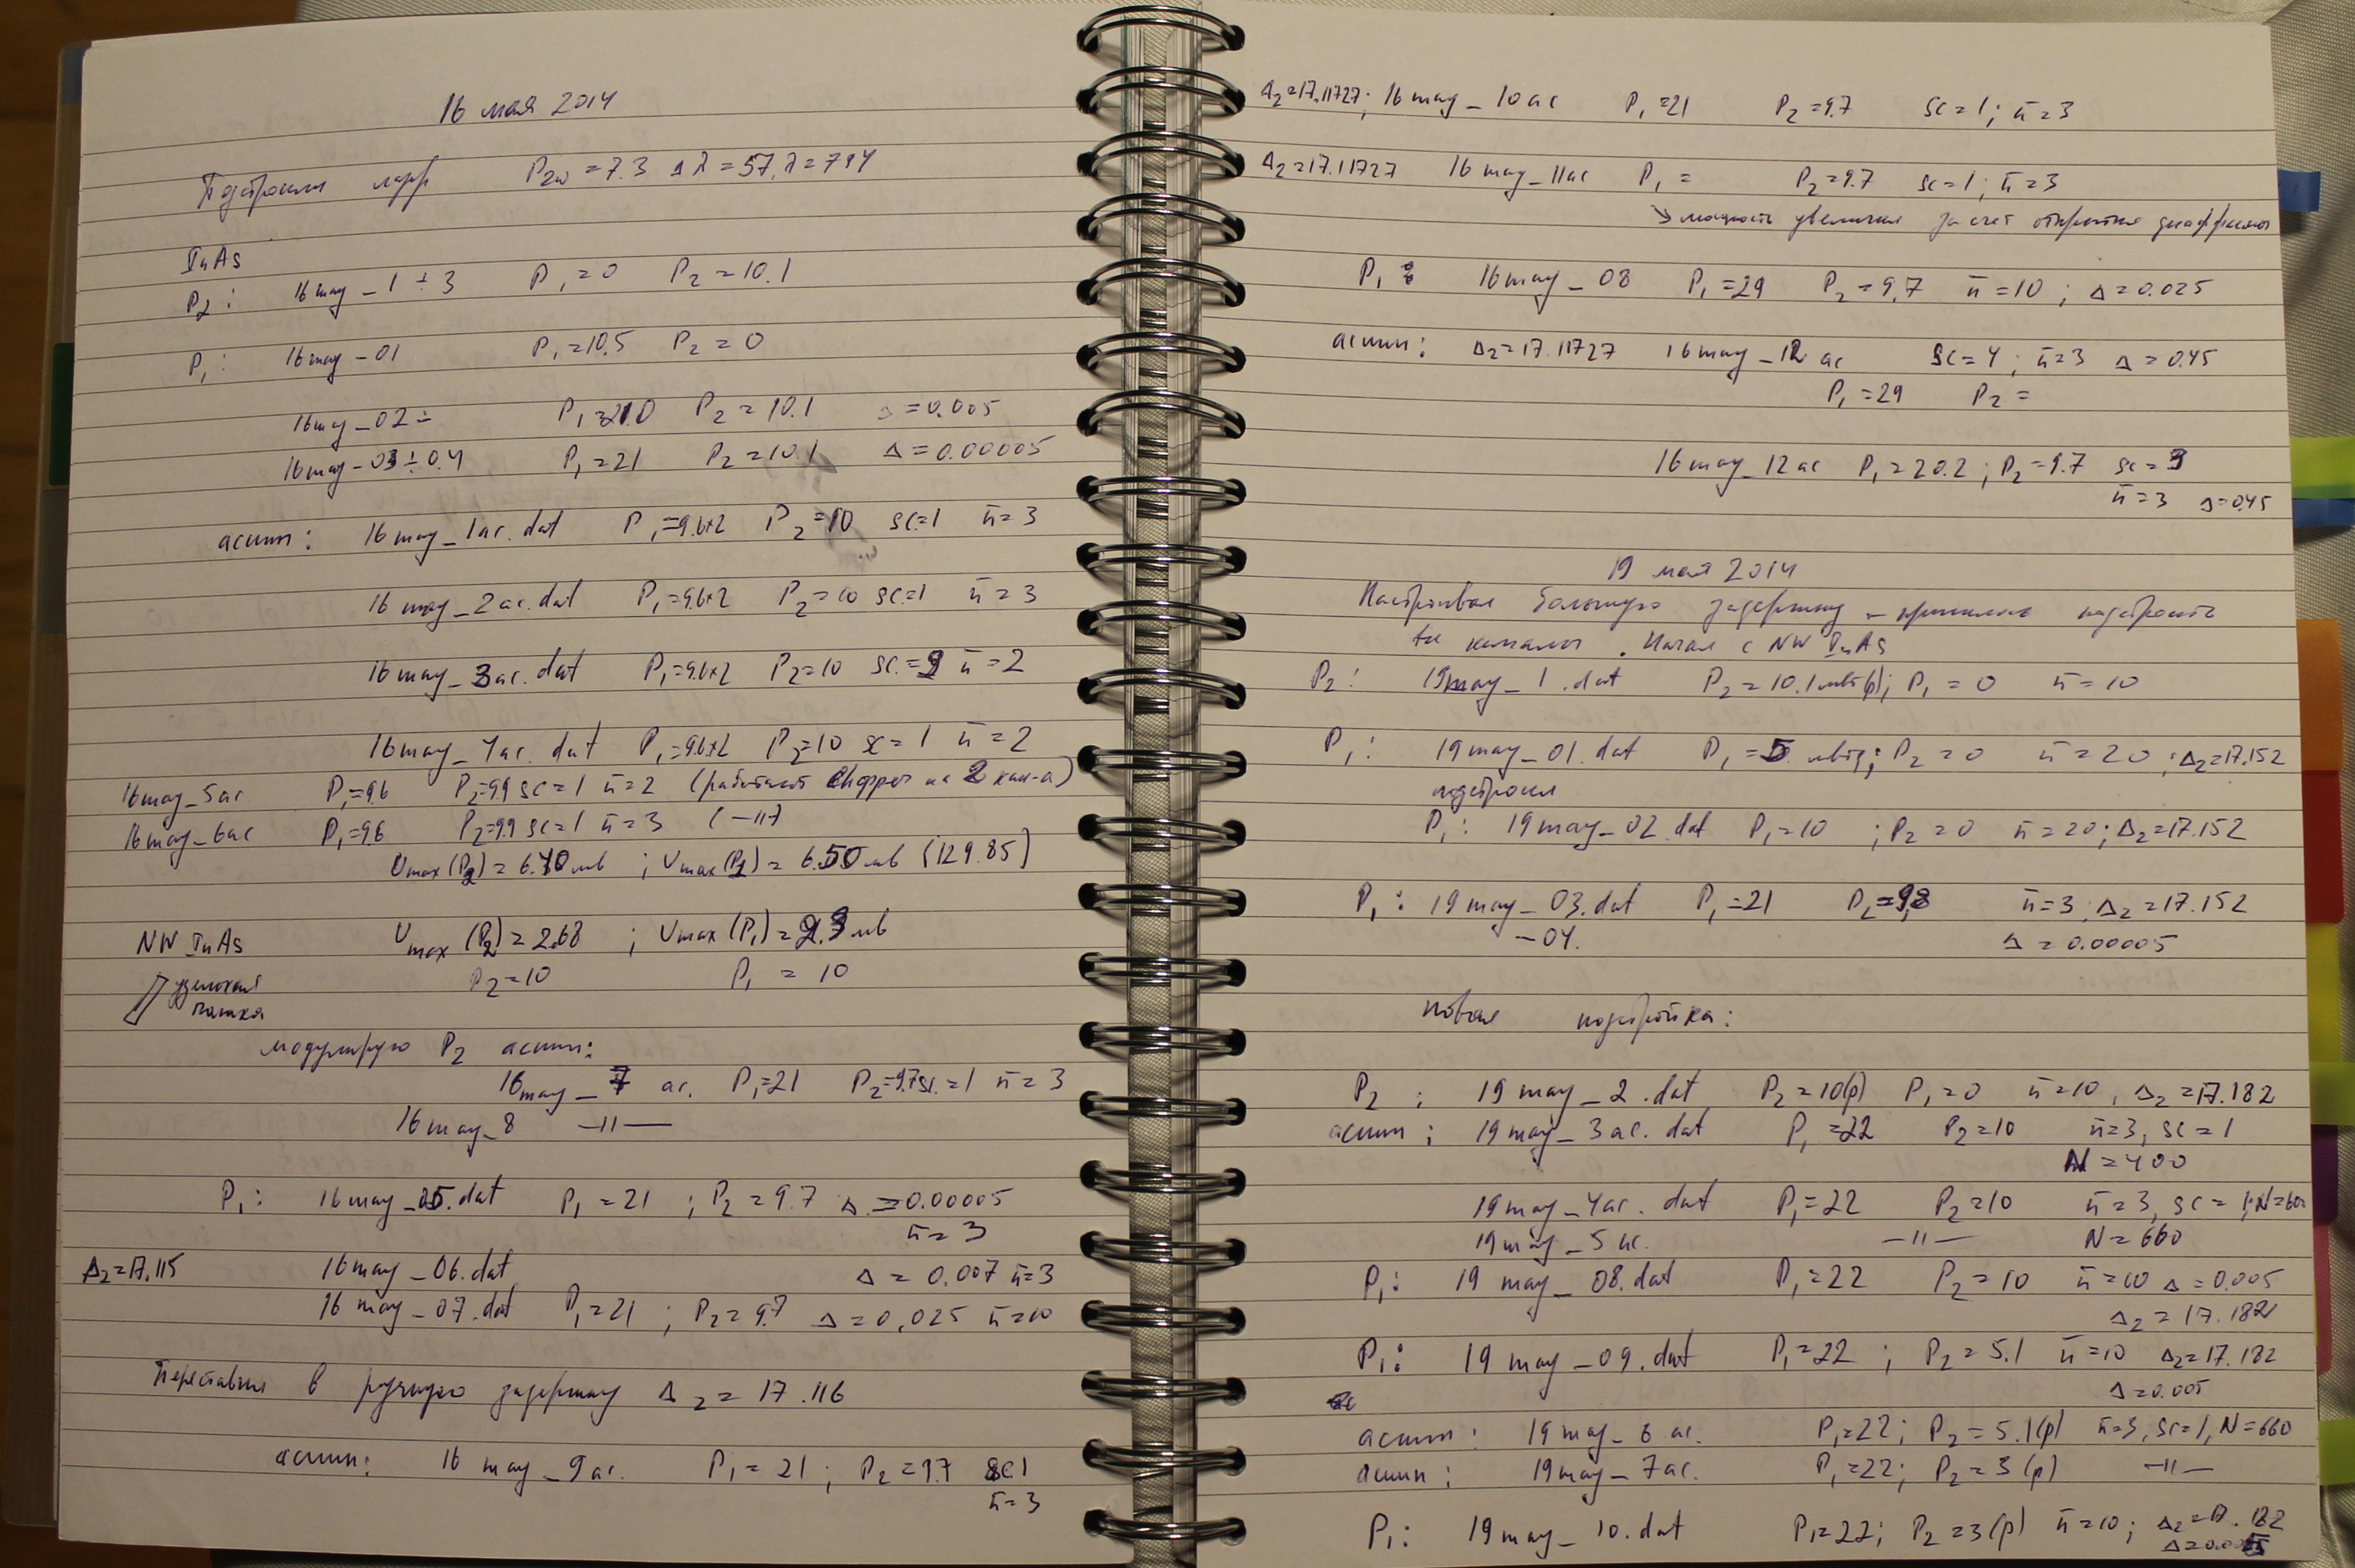 16 мая 2014
Подстроили лазер P2ω = 7.3 Δλ = 57, λ = 794
InAs
P2: 16may_1÷3 P1 = 0 P2 = 10.1
P1: 16may_01 P1 = 10.5 P2 = 0
16may_02 P1 = 21.0 P2 = 10.1 Δ = 0.005
16may_03÷04 P1 = 21 P2 = 10.1 Δ = 0.00005
асимм: 16may_1ac.dat P1 = 9.6*2 P2 = 10 sc=1 n̄ = 3
16may_2ac.dat P1 = 9.6*2 P2 = 10 sc=1 n̄ = 3
16may_3ac.dat P1 = 9.6*2 P2 = 10 sc = n̄ = 2
16may_4ac.dat P1 = 9.6*2 P2 = 10 sc = 1 n̄ = 2
16may_5ac P1 = 9.6 P2 = 9.9 sc = 1 n̄ = 2 (работает chopper на 2 кан-а)
16may_6ac P1 = 9.6 P2 = 9.9 sc = 1 n̄ = 3 (—"—)
Umax(P2) = 6.70 мв ; Umax(P1) = 6.50 мв (129.85)
NW InAs Umax(P2) = 2.68 ; Umax(P1) = 2.3 мв
P2 = 10 P1 = 10
модулирую P2 асимм:
16may_7 ac. P1 = 21 P2 = 9.7 sc. = 1 n̄ = 3
16may_8 —"—
P1: 16may_05.dat P1 = 21 ; P2 = 9.7 Δ = 0.00005
n̄ = 3
Δ2 = 17.115 16may_06.dat Δ = 0.007 n̄ = 3
16may_07.dat P1 = 21 ; P2 = 9.7 Δ = 0,025 n̄ = 10
Переставил в ручную задержку Δ2 = 17.116
асимм: 16may_9ac. P1 = 21 ; P2 = 9.7 sc 1
n̄ = 3
Δ2 = 17.11727; 16may_10ac P1 = 21 P2 = 9.7 sc = 1; n̄ = 3
Δ2 = 17.11727 16may_11ac P1 = P2 = 9.7 sc = 1; n̄ = 3
↘ мощность увеличил за счет открытия диафрагмы
P1: 16may_08 P1 = 29 P2 = 9,7 n̄ = 10 ; Δ = 0.025
асимм: Δ2 = 17.11727 16may_12 ac sc = 4 ; n̄ = 3 Δ = 0.45
P1 = 29 P2 =
16may_12ac P1 = 20.2 ; P2 = 9.7 sc = 3
n̄ = 3 Δ = 0.45
19 мая 2014
Настраивал большую задержку – пришлось подстроить
каналы. Начал с NW InAs
P2: 19may_1.dat P2 = 10.1 мвт(р); P1 = 0 n̄ = 10
P1: 19may_01.dat P1 = 5 мвт; P2 = 0 n̄ = 20 ; Δ2 = 17.152
подстроил
P1: 19may_02.dat P1 = 10 ; P2 = 0 n̄ = 20 ; Δ2 = 17.152
P1: 19may_03.dat P1 = 21 P2 = 9.8 n̄ = 3 ; Δ2 = 17.152
—04. Δ = 0.00005
Новая подстройка:
P2 : 19may_2.dat P2 = 10(р) P1 = 0 n̄ = 10 , Δ2 = 17.182
асимм : 19may_3ac.dat P1 = 22 P2 = 10 n̄ = 3, sc = 1
N = 400
19may_4ac.dat P1 = 22 P2 = 10 n̄ = 3, sc = 1; N = 600
19may_5ac. —"— N = 660
P1: 19may_08.dat P1 = 22 P2 = 10 n̄ = 10 Δ = 0.005
Δ2 = 17.182
P1: 19may_09.dat P1 = 22 ; P2 = 5.1 n̄ = 10 Δ2 = 17.182
Δ = 0.005
асимм : 19may_6 ac. P1 = 22; P2 = 5.1(р) n̄ = 3, sc = 1, N = 660
асимм : 19may_7ac. P1 = 22; P2 = 3(р) —"—
P1: 19may_10.dat P1 = 22; P2 = 3(р) n̄ = 10; Δ2 = 17.182